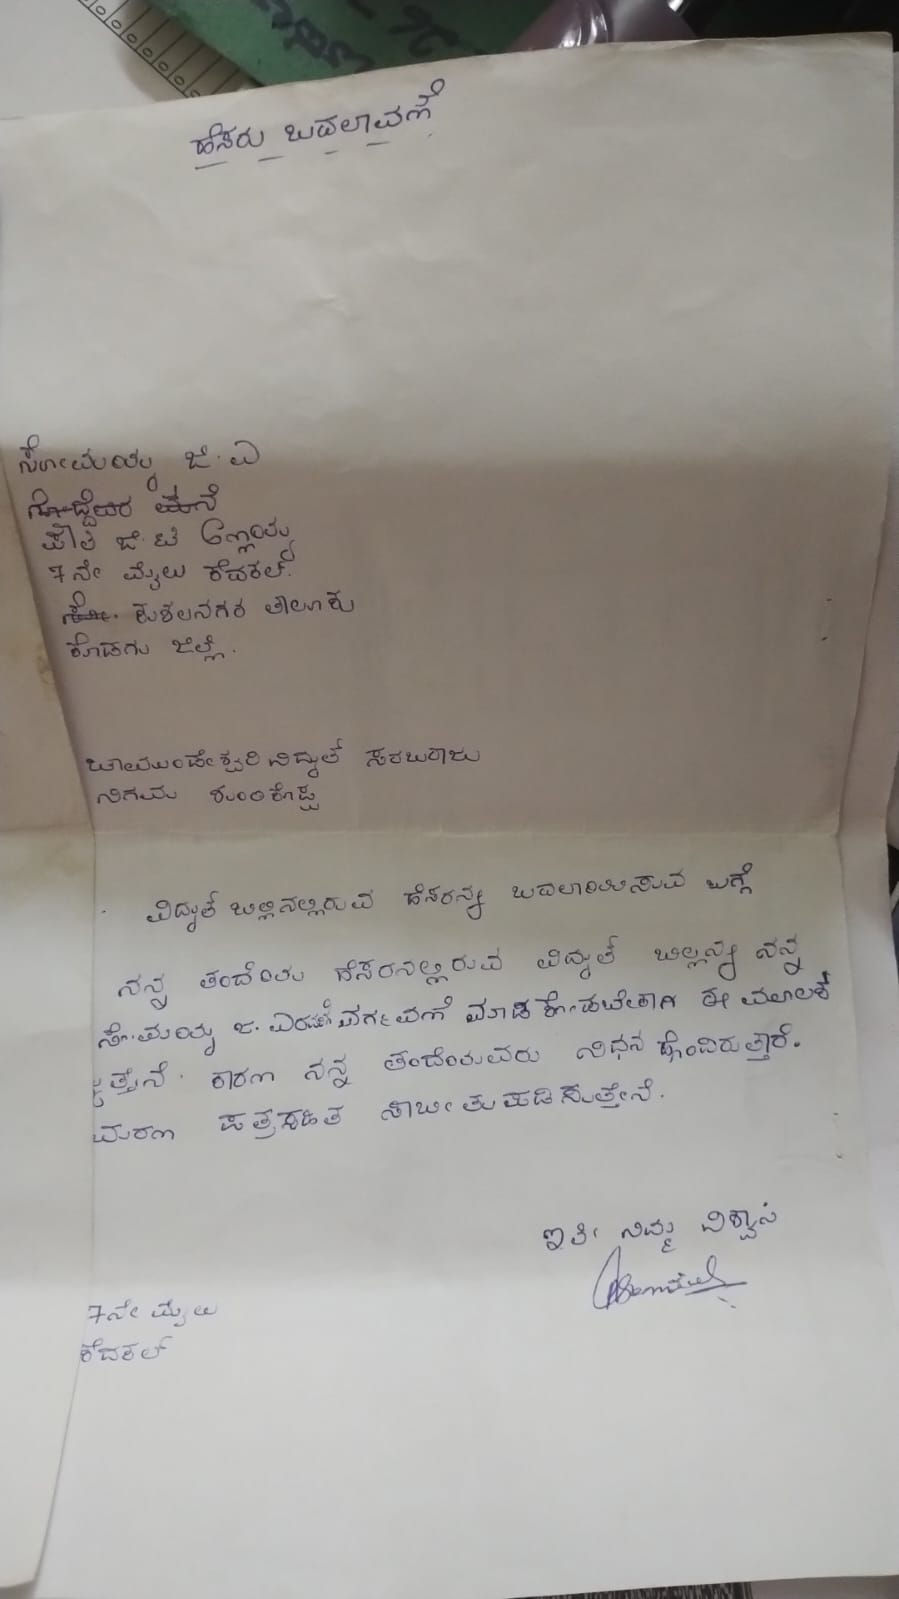 ಹೆಸರು ಬದಲಾವಣೆ
ಸೋಮಯ್ಯ ಜೆ. ಎ
ಜೆ. ಟಿ
7ನೇ ಮೈಲು ಕೆದಕಲ್.
ಕುಶಲನಗರ ತಾಲೂಕು
ಕೊಡಗು ಜಿಲ್ಲೆ.
ಚಾಮುಂಡೇಶ್ವರಿ ವಿದ್ಯುತ್ ಸರಬರಾಜು
ನಿಗಮ ಸುಂಟಿಕೊಪ್ಪ
ವಿದ್ಯುತ್ ಬಿಲ್ಲಿನಲ್ಲಿರುವ ಹೆಸರನ್ನು ಬದಲಾಯಿಸುವ ಬಗ್ಗೆ
ನನ್ನ ತಂದೆಯ ಹೆಸರಿನಲ್ಲಿರುವ ವಿದ್ಯುತ್ ಬಿಲ್ಲನ್ನು ನನ್ನ
ಸೋಮಯ್ಯ ಜೆ. ವರ್ಗಾವಣೆ ಮಾಡಿ ಕೊಡಬೇಕಾಗಿ ಈ ಮೂಲಕ
ಕಾರಣ ನನ್ನ ತಂದೆಯವರು ನಿಧನ ಹೊಂದಿರುತ್ತಾರೆ.
ಮರಣ ಪತ್ರ ಸಹಿತ ಸಾಬೀತು ಪಡಿಸುತ್ತೇನೆ.
ಇತೀ ನಿಮ್ಮ ವಿಶ್ವಾಸಿ
7ನೇ ಮೈಲು
ಕೆದಕಲ್